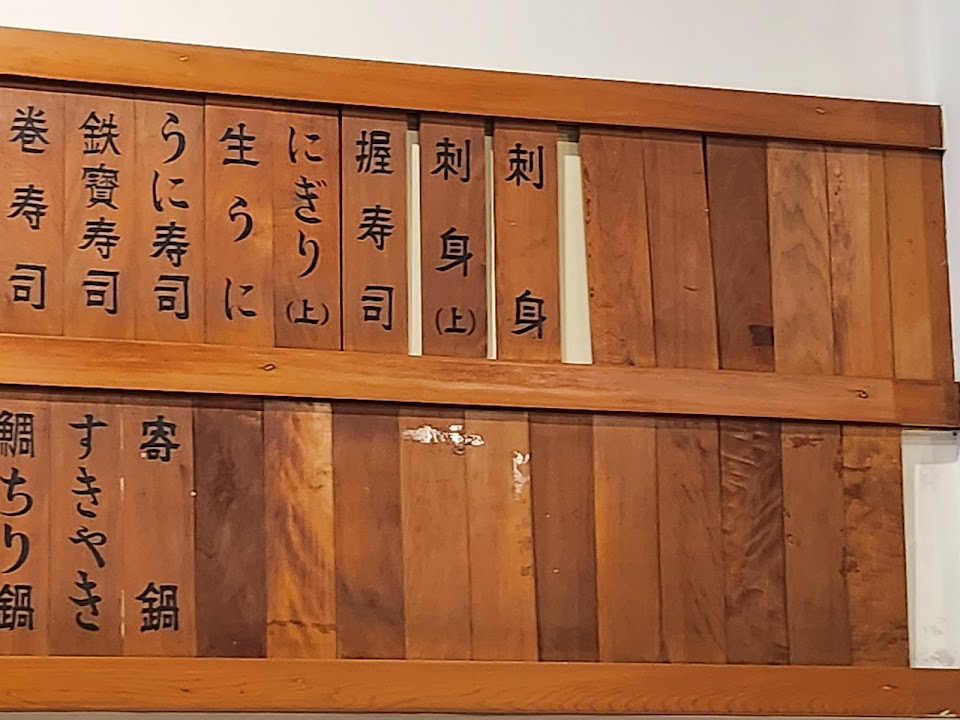 刺身
刺身(上)
握寿司
にぎり(上)
生うに
うに寿司
鉄寳寿司
巻寿司
寄鍋
すきやき
鯛ちり鍋